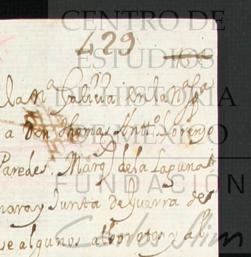 CENTRO DE
ESTUDIOS
DE HISTORIA
DE MÉXICO
FUNDACIÓN
Carlos Slim
429
a Don Thomas Antt.º Lorenzo
Paredes. Marq.s de la Laguna
mara y Junta de Guerra de
se algunos alborotos y al